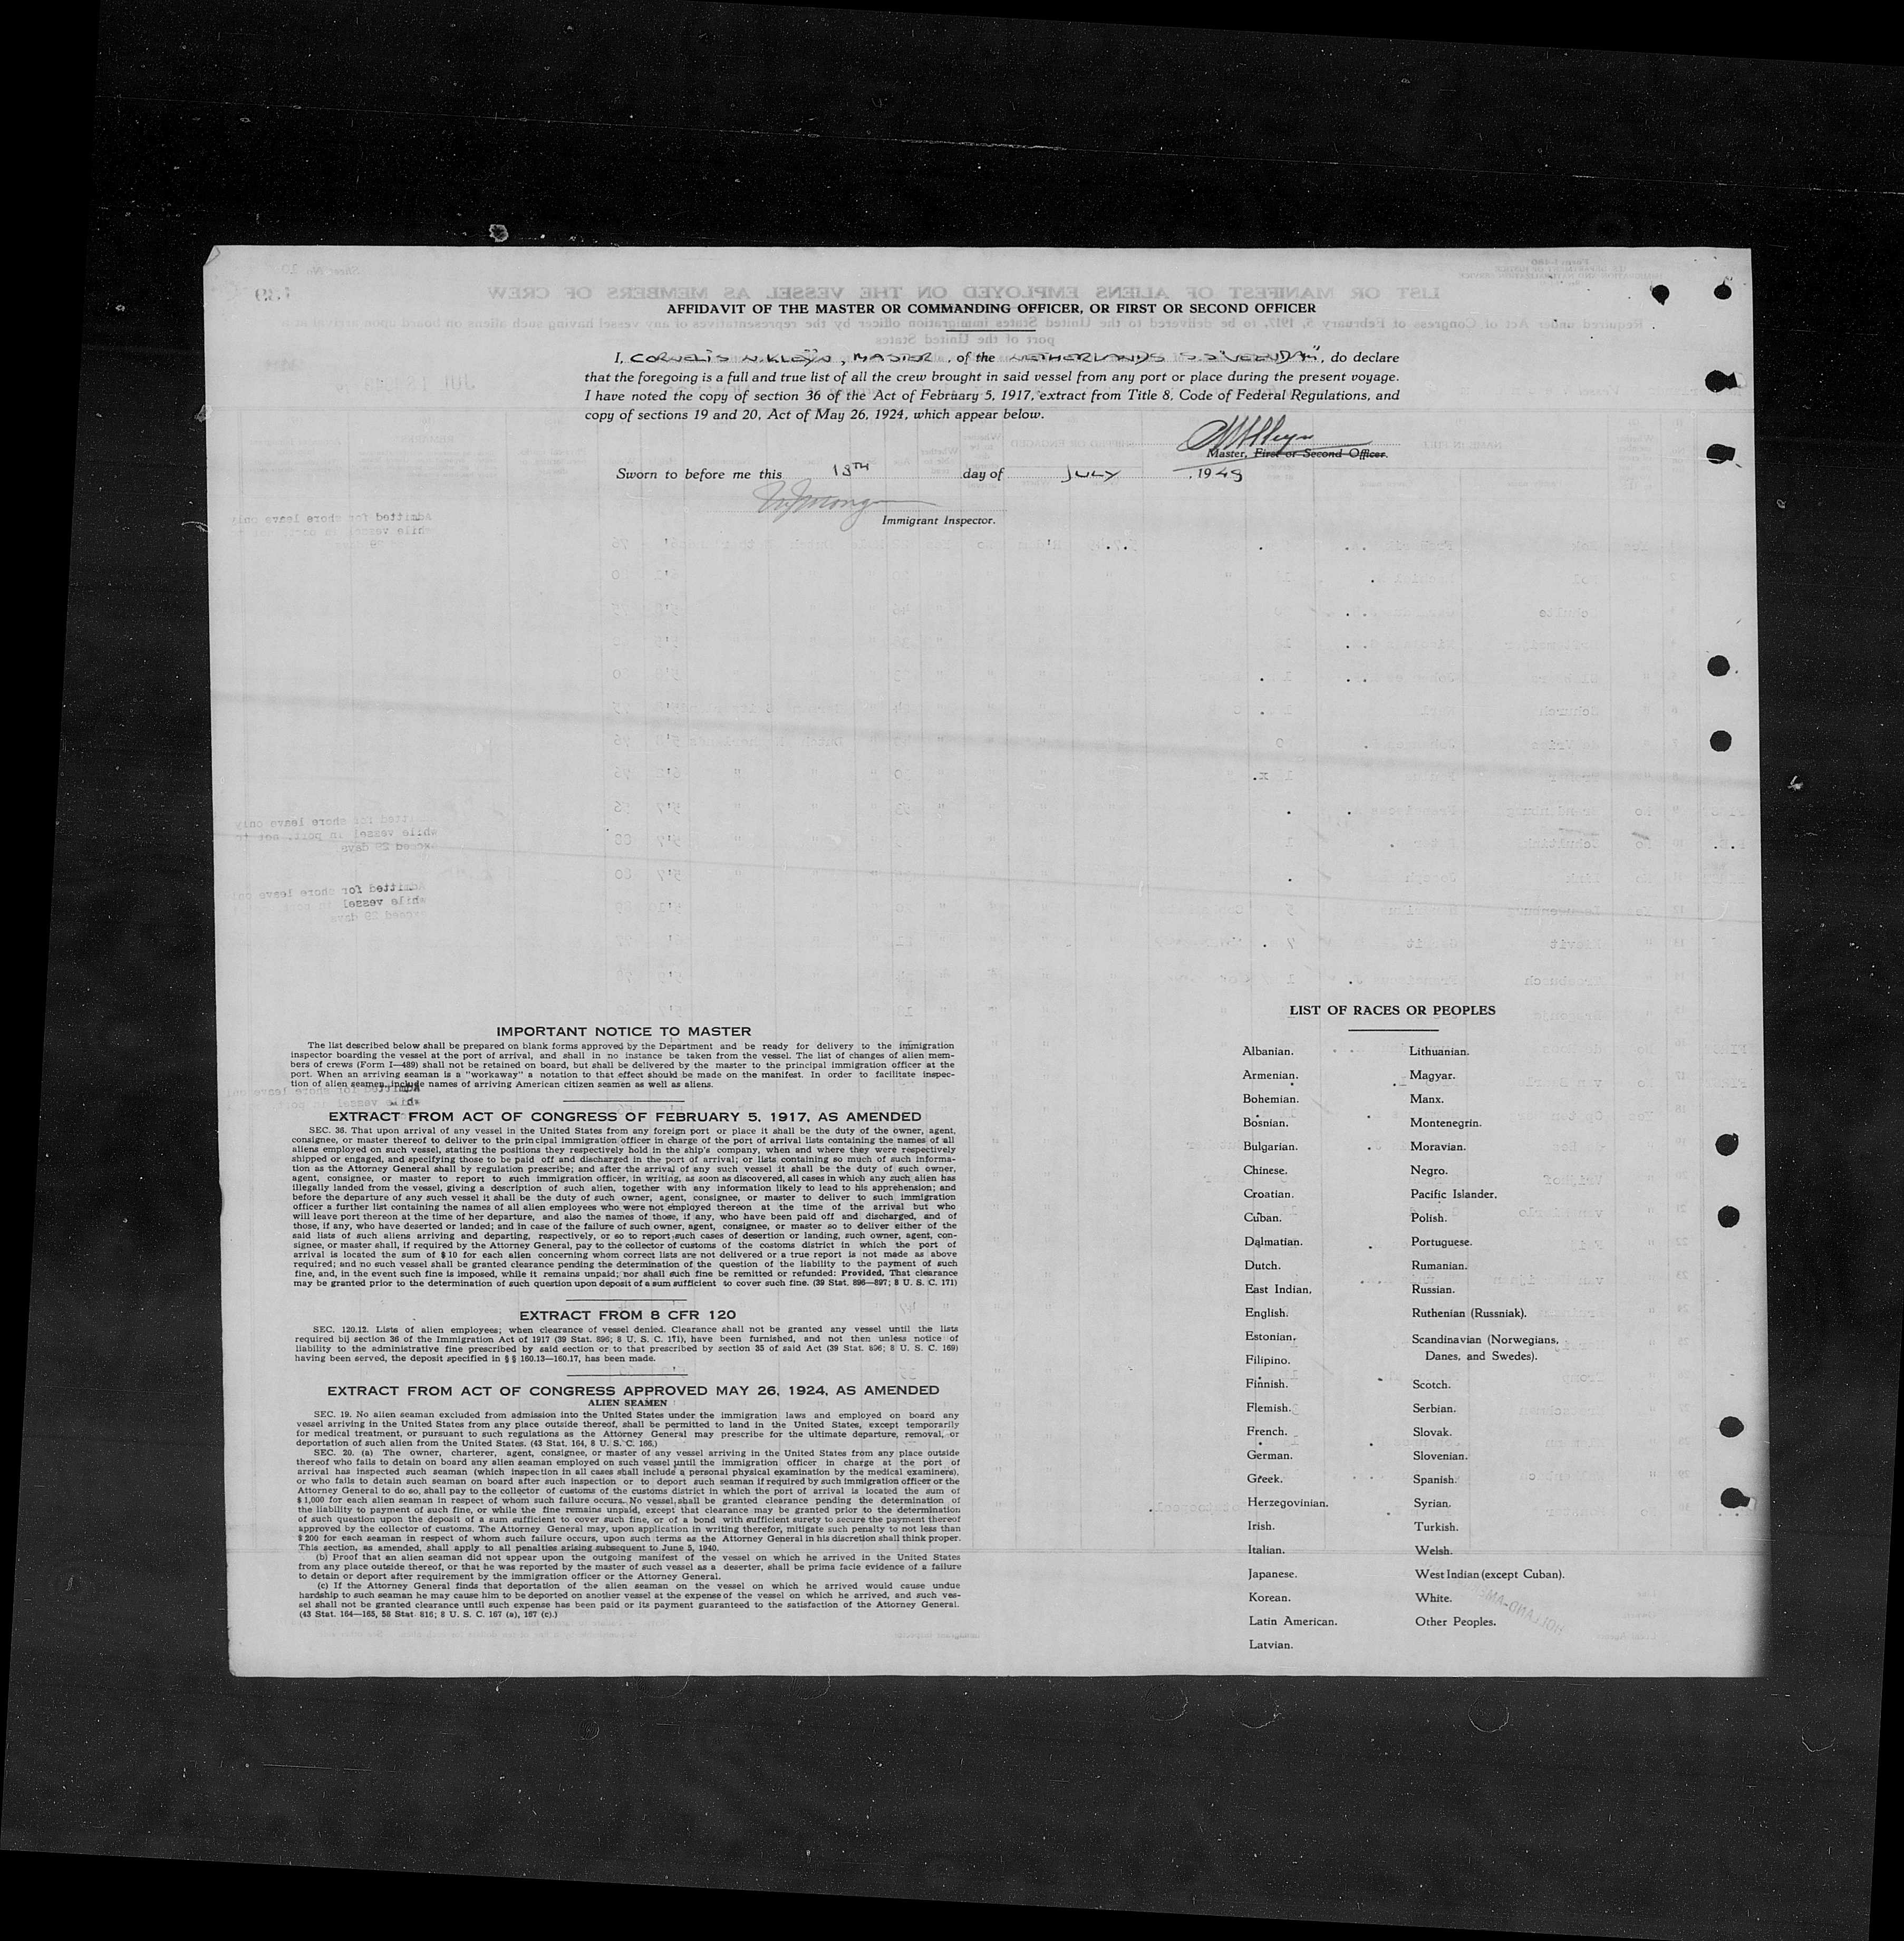 AFFIDAVIT OF THE MASTER OR COMMANDING OFFICER, OR FIRST OR SECOND OFFICER
I, CORNELIS N. KLEYN, MASTER, of the NETHERLANDS S.S "VEENDAM", do declare
that the foregoing is a full and true list of all the crew brought in said vessel from any port or place during the present voyage.
I have noted the copy of section 36 of the Act of February 5, 1917, extract from Title 8, Code of Federal Regulations, and
copy of sections 19 and 20, Act of May 26, 1924, which appear below.
Master, First or Second Officer.
Sworn to before me this 18TH day of JULY, 1949
Immigrant Inspector.
IMPORTANT NOTICE TO MASTER
The list described below shall be prepared on blank forms approved by the Department and be ready for delivery to the immigration
inspector boarding the vessel at the port of arrival, and shall in no instance be taken from the vessel. The list of changes of alien mem-
bers of crews (Form I—489) shall not be retained on board, but shall be delivered by the master to the principal immigration officer at the
port. When an arriving seaman is a "workaway" a notation to that effect should be made on the manifest. In order to facilitate inspec-
tion of alien seamen include names of arriving American citizen seamen as well as aliens.
EXTRACT FROM ACT OF CONGRESS OF FEBRUARY 5, 1917, AS AMENDED
SEC. 36. That upon arrival of any vessel in the United States from any foreign port or place it shall be the duty of the owner, agent,
consignee, or master thereof to deliver to the principal immigration officer in charge of the port of arrival lists containing the names of all
aliens employed on such vessel, stating the positions they respectively hold in the ship's company, when and where they were respectively
shipped or engaged, and specifying those to be paid off and discharged in the port of arrival; or lists containing so much of such informa-
tion as the Attorney General shall by regulation prescribe; and after the arrival of any such vessel it shall be the duty of such owner,
agent, consignee, or master to report to such immigration officer, in writing, as soon as discovered, all cases in which any such alien has
illegally landed from the vessel, giving a description of such alien, together with any information likely to lead to his apprehension; and
before the departure of any such vessel it shall be the duty of such owner, agent, consignee, or master to deliver to such immigration
officer a further list containing the names of all alien employees who were not employed thereon at the time of the arrival but who
will leave port thereon at the time of her departure, and also the names of those, if any, who have been paid off and discharged, and of
those, if any, who have deserted or landed; and in case of the failure of such owner, agent, consignee, or master so to deliver either of the
said lists of such aliens arriving and departing, respectively, or so to report such cases of desertion or landing, such owner, agent, con-
signee, or master shall, if required by the Attorney General, pay to the collector of customs of the costoms district in which the port of
arrival is located the sum of $10 for each alien concerning whom correct lists are not delivered or a true report is not made as above
required; and no such vessel shall be granted clearance pending the determination of the question of the liability to the payment of such
fine, and, in the event such fine is imposed, while it remains unpaid; nor shall such fine be remitted or refunded: Provided, That clearance
may be granted prior to the determination of such question upon deposit of a sum sufficient to cover such fine. (39 Stat. 896—897; 8 U. S. C. 171)
EXTRACT FROM 8 CFR 120
SEC. 120.12. Lists of alien employees; when clearance of vessel denied. Clearance shall not be granted any vessel until the lists
required bij section 36 of the Immigration Act of 1917 (39 Stat. 896; 8 U. S. C. 171), have been furnished, and not then unless notice of
liability to the administrative fine prescribed by said section or to that prescribed by section 35 of said Act (39 Stat. 896; 8 U. S. C. 169)
having been served, the deposit specified in §§ 160.13—160.17, has been made.
EXTRACT FROM ACT OF CONGRESS APPROVED MAY 26, 1924, AS AMENDED
ALIEN SEAMEN
SEC. 19. No alien seaman excluded from admission into the United States under the immigration laws and employed on board any
vessel arriving in the United States from any place outside thereof, shall be permitted to land in the United States, except temporarily
for medical treatment, or pursuant to such regulations as the Attorney General may prescribe for the ultimate departure, removal, or
deportation of such alien from the United States. (43 Stat. 164, 8 U. S. C. 166.)
SEC. 20. (a) The owner, charterer, agent, consignee, or master of any vessel arriving in the United States from any place outside
thereof who fails to detain on board any alien seaman employed on such vessel until the immigration officer in charge at the port of
arrival has inspected such seaman (which inspection in all cases shall include a personal physical examination by the medical examiners),
or who fails to detain such seaman on board after such inspection or to deport such seaman if required by such immigration officer or the
Attorney General to do so, shall pay to the collector of customs of the customs district in which the port of arrival is located the sum of
$1,000 for each alien seaman in respect of whom such failure occurs. No vessel shall be granted clearance pending the determination of
the liability to payment of such fine, or while the fine remains unpaid, except that clearance may be granted prior to the determination
of such question upon the deposit of a sum sufficient to cover such fine, or of a bond with sufficient surety to secure the payment thereof
approved by the collector of customs. The Attorney General may, upon application in writing therefor, mitigate such penalty to not less than
$200 for each seaman in respect of whom such failure occurs, upon such terms as the Attorney General in his discretion shall think proper.
This section, as amended, shall apply to all penalties arising subsequent to June 5, 1940.
(b) Proof that an alien seaman did not appear upon the outgoing manifest of the vessel on which he arrived in the United States
from any place outside thereof, or that he was reported by the master of such vessel as a deserter, shall be prima facie evidence of a failure
to detain or deport after requirement by the immigration officer or the Attorney General.
(c) If the Attorney General finds that deportation of the alien seaman on the vessel on which he arrived would cause undue
hardship to such seaman he may cause him to be deported on another vessel at the expense of the vessel on which he arrived, and such ves-
sel shall not be granted clearance until such expense has been paid or its payment guaranteed to the satisfaction of the Attorney General.
(43 Stat. 164—165, 58 Stat. 816; 8 U. S. C. 167 (a), 167 (c).)
LIST OF RACES OR PEOPLES
Albanian.
Armenian.
Bohemian.
Bosnian.
Bulgarian.
Chinese.
Croatian.
Cuban.
Dalmatian.
Dutch.
East Indian.
English.
Estonian.
Filipino.
Finnish.
Flemish.
French.
German.
Greek.
Herzegovinian.
Irish.
Italian.
Japanese.
Korean.
Latin American.
Latvian.
Lithuanian.
Magyar.
Manx.
Montenegrin.
Moravian.
Negro.
Pacific Islander.
Polish.
Portuguese.
Rumanian.
Russian.
Ruthenian (Russniak).
Scandinavian (Norwegians,
Danes, and Swedes).
Scotch.
Serbian.
Slovak.
Slovenian.
Spanish.
Syrian.
Turkish.
Welsh.
West Indian (except Cuban).
White.
Other Peoples.